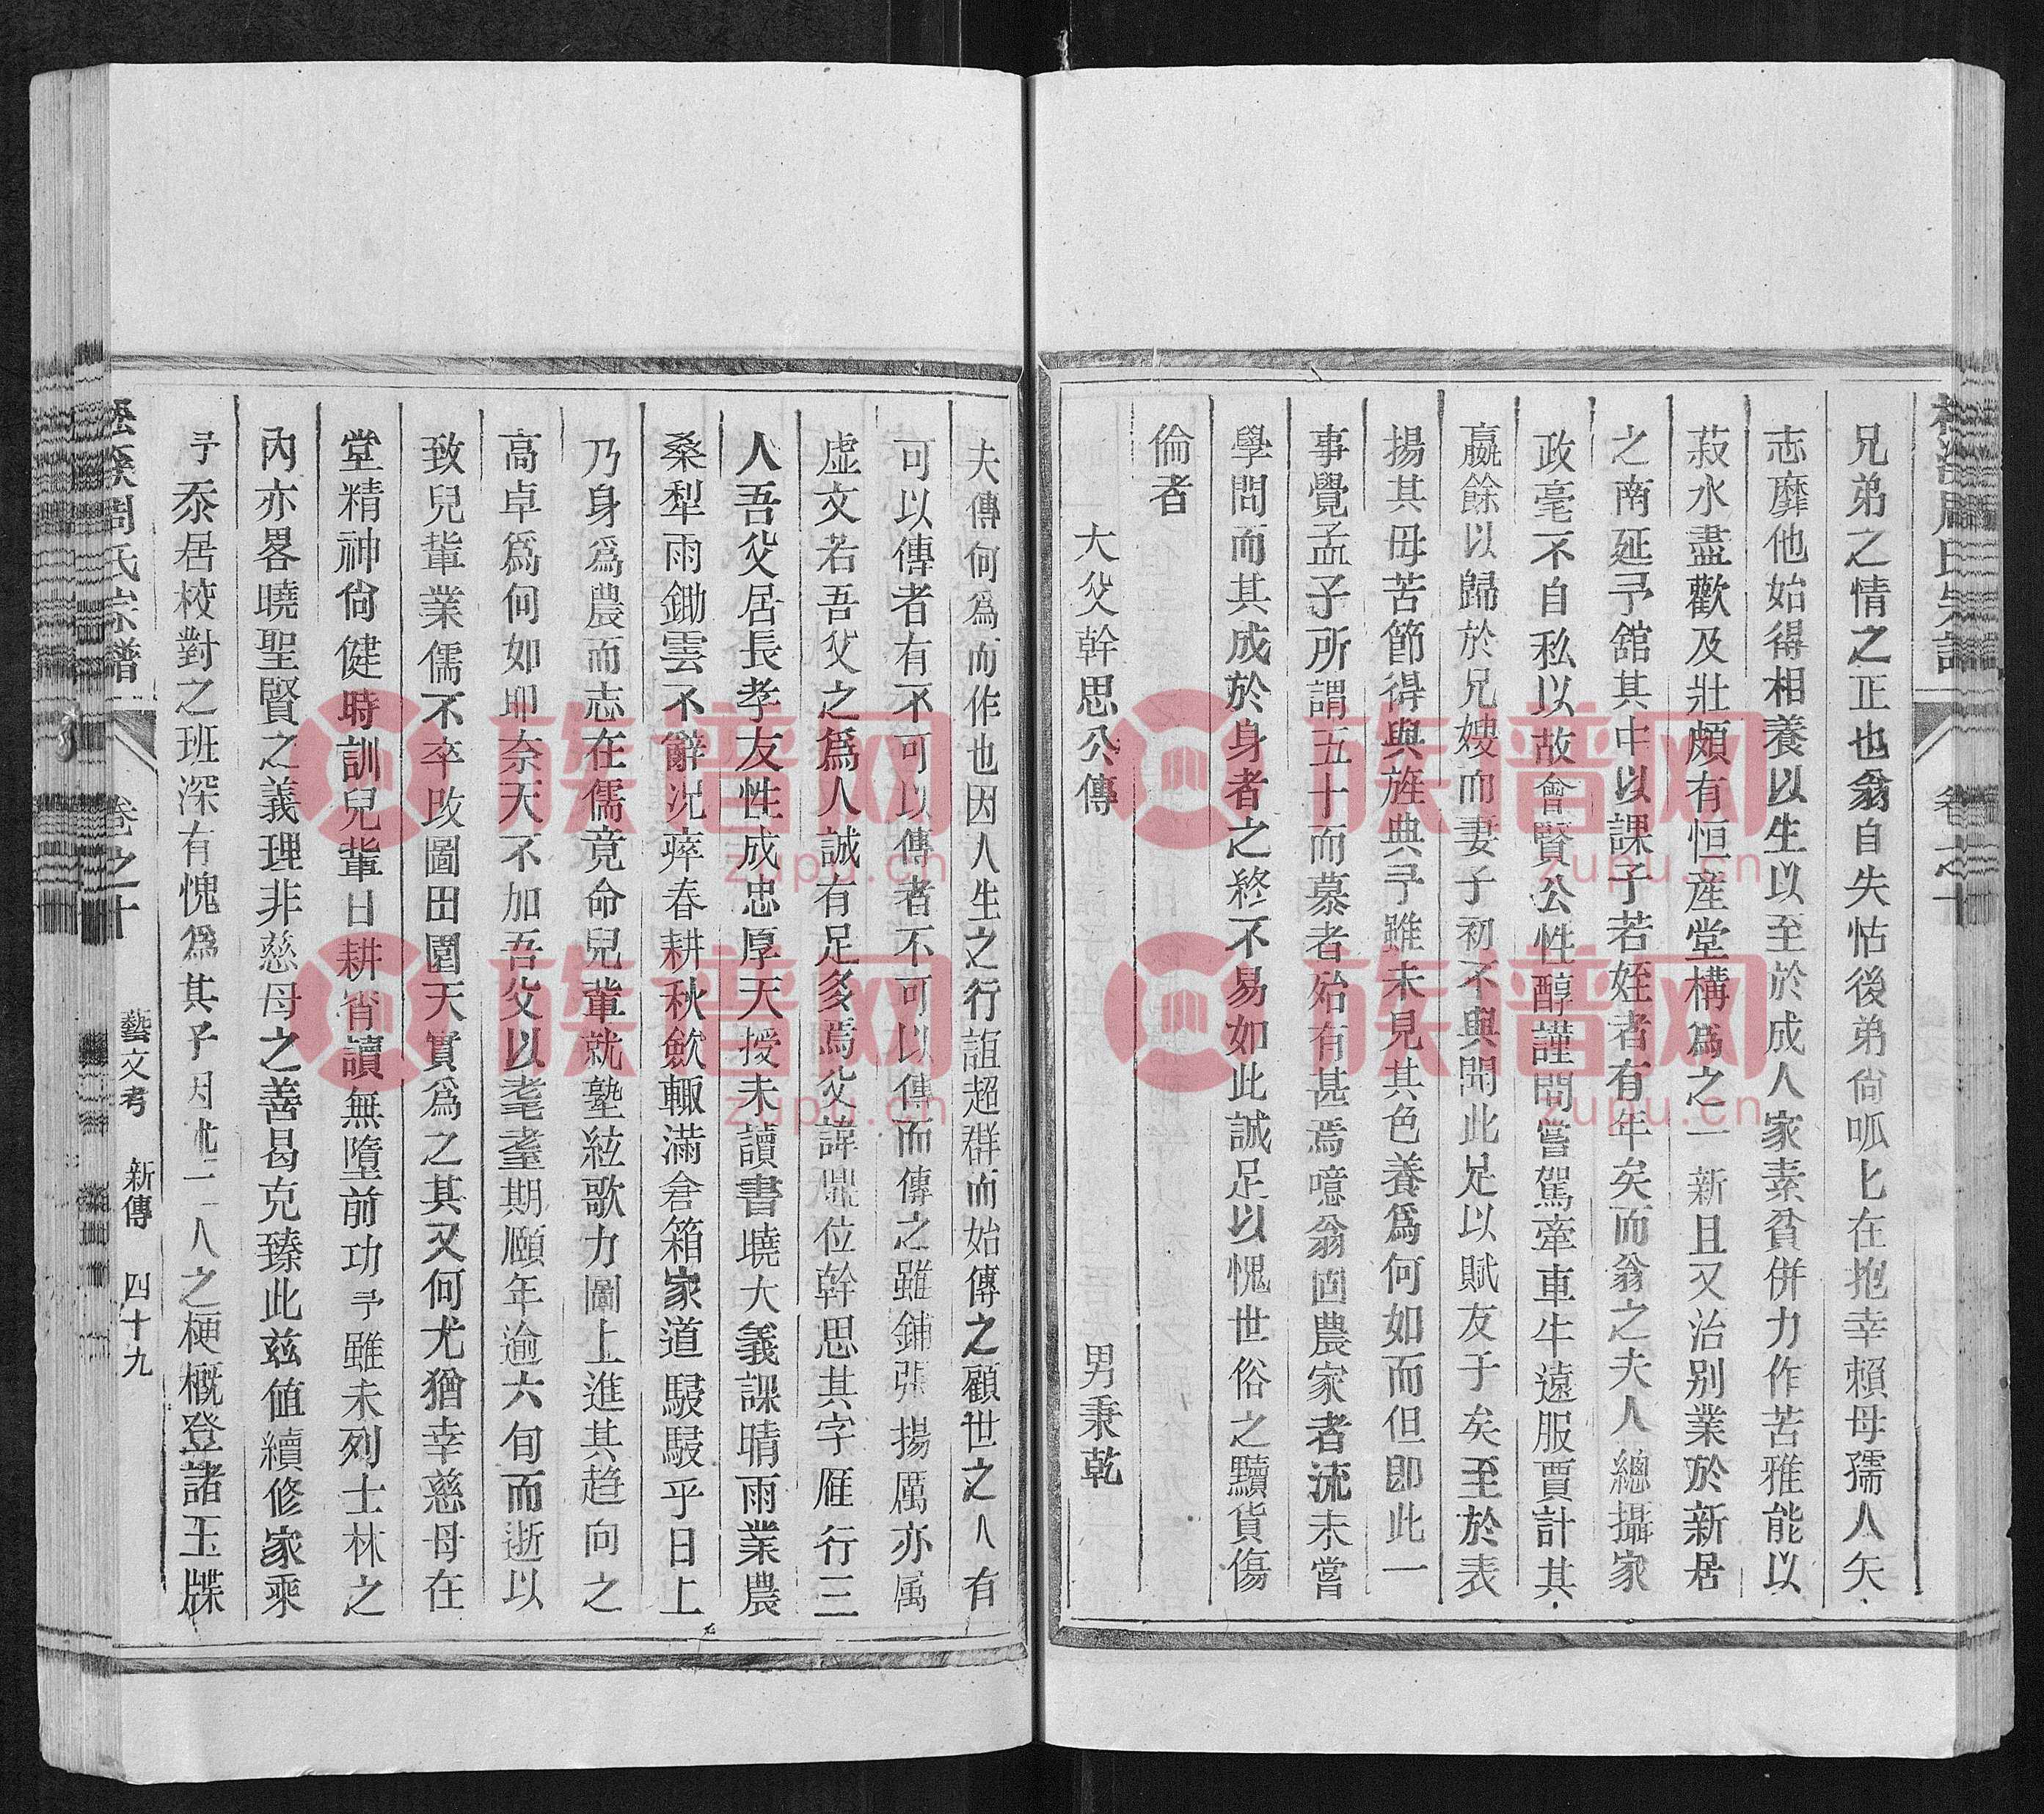 兄弟之情之正也翁自失怙後弟尙呱匕在抱幸賴母孺人矢
志靡他始得相養以生以至於成人家素貧併力作苦雅能以
菽水盡歡及壯頗有恒産堂構爲之一新且又治別業於新居
之南延予舘其中以課子若姪者有年矣而翁之夫人總攝家
政毫不自私以故會賢公性醇謹問嘗駕牽車牛遠服賈計其
嬴餘以歸於兄嫂而妻子初不與問此足以賦友于矣至於表
揚其母苦節得與旌典予雖未見其色養爲何如而但即此一
事覺孟子所謂五十而慕者殆有甚焉噫翁固農家者流未嘗
學問而其成於身者之終不易如此誠足以愧世俗之黷貨傷
倫者
大父幹思公傳 男秉乾
夫傳何爲而作也因人生之行誼超群而始傳之顧世之人有
可以傳者有不可以傳者不可以傳而傳之雖鋪張揚厲亦属
虛文若吾父之爲人誠有足多焉父諱鼎位幹思其字雁行三
人吾父居長孝友性成忠厚天授未讀書曉大義課晴雨業農
桑犁雨鋤雲不辭况瘁春耕秋歛輙滿倉箱家道駸駸乎日上
乃身爲農而志在儒竟命兒輩就塾絃歌力圖上進其趋向之
高卓爲何如耶奈天不加吾父以耄耋期頤年逾六旬而逝以
致兒輩業儒不卒改圖田園天實爲之其又何尤猶幸慈母在
堂精神尙健時訓兒輩日耕宵讀無墮前功予雖未列士林之
內亦畧曉聖賢之義理非慈母之善曷克臻此茲值續修家乘
予忝居校對之班深有愧爲其子因述二人之梗概登諸玉牒
周氏宗譜 卷之十 藝文考 新傳 四十九
周氏宗譜 卷之十
族譜网
zupu.cn
族譜网
zupu.cn
族譜网
zupu.cn
族譜网
zupu.cn